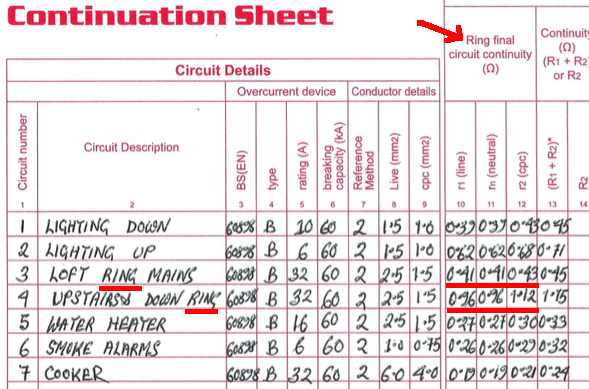 Continuation Sheet
Ring final circuit continuity (Ω)
Continuity (Ω) (R1 + R2) or R2
Circuit Details
Overcurrent device
Conductor details
Circuit number
Circuit Description
BS(EN)
type
rating (A)
breaking capacity (kA)
Reference Method
Live (mm2)
cpc (mm2)
r1 (line)
rn (neutral)
r2 (cpc)
(R1 + R2)*
R2
1 2 3 4 5 6 7 8 9 10 11 12 13 14
1 LIGHTING DOWN 60898 B 10 60 2 1·5 1·0 0·37 0·37 0·43 0·45
2 LIGHTING UP 60898 B 6 60 2 1·5 1·0 0·62 0·62 0·68 0·71
3 LOFT RING MAINS 60898 B 32 60 2 2·5 1·5 0·41 0·41 0·43 0·45
4 UPSTAIRSS DOWN RING 60898 B 32 60 2 2·5 1·5 0·96 0·96 1·12 1·15
5 WATER HEATER 60898 B 16 60 2 2·5 1·5 0·27 0·27 0·30 0·33
6 SMOKE ALARMS 60898 B 6 60 2 1·0 0·75 0·26 0·26 0·29 0·32
7 COOKER 60898 B 32 60 2 6·0 4·0 0·19 0·19 0·21 0·24